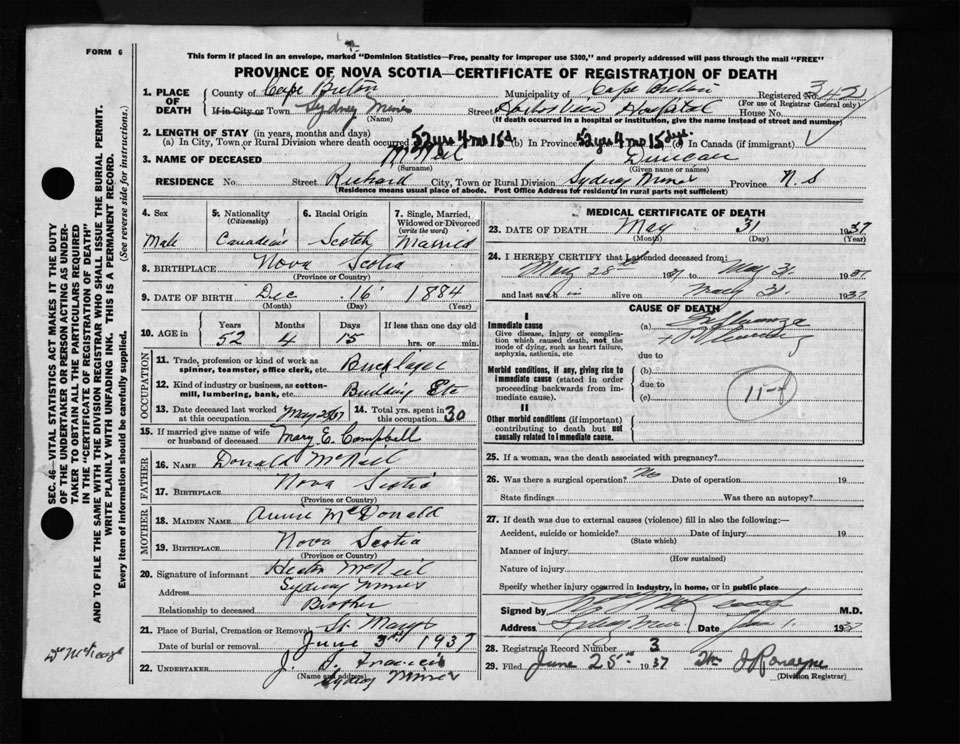 FORM 6
This form if placed in an envelope, marked "Dominion Statistics—Free, penalty for improper use $300," and properly addressed will pass through the mail "FREE"
PROVINCE OF NOVA SCOTIA—CERTIFICATE OF REGISTRATION OF DEATH
1. PLACE OF DEATH County of Cape Breton Municipality of Cape Breton Registered No. 342
(For use of Registrar General only)
If in City or Town Sydney Mines Street Harbor View Hospital House No.
(Name) (If death occurred in a hospital or institution, give the name instead of street and number)
2. LENGTH OF STAY (in years, months and days)
(a) In City, Town or Rural Division where death occurred 52 yrs 4 mo 15 d. (b) In Province 52 yrs 4 mo 15 dys. (c) In Canada (if immigrant)
3. NAME OF DECEASED McNeil Duncan
(Surname) (Given name or names)
RESIDENCE No. Street Richard City, Town or Rural Division Sydney Mines Province N. S
(Residence means usual place of abode. Post Office Address for residents in rural parts not sufficient)
4. Sex 5. Nationality (Citizenship) 6. Racial Origin 7. Single, Married, Widowed or Divorced (write the word)
Male Canadian Scotch Married
8. BIRTHPLACE Nova Scotia
(Province or Country)
9. DATE OF BIRTH Dec 16 1884
(Month) (Day) (Year)
10. AGE in Years Months Days If less than one day old
52 4 15 hrs. or min.
OCCUPATION
11. Trade, profession or kind of work as spinner, teamster, office clerk, etc. Bricklayer
12. Kind of industry or business, as cotton-mill, lumbering, bank, etc. Building Etc
13. Date deceased last worked at this occupation May 14. Total yrs. spent in this occupation 30
15. If married give name of wife or husband of deceased Mary E. Campbell
FATHER
16. NAME Donald McNeil
17. BIRTHPLACE Nova Scotia
(Province or Country)
MOTHER
18. MAIDEN NAME Annie McDonald
19. BIRTHPLACE Nova Scotia
(Province or Country)
20. Signature of informant McNeil
Address Sydney Mines
Relationship to deceased Brother
21. Place of Burial, Cremation or Removal St. Marys
Date of burial or removal June 3rd 1937
22. UNDERTAKER J. Francis
(Name and address) Sydney Mines
MEDICAL CERTIFICATE OF DEATH
23. DATE OF DEATH May 31 1937
(Month) (Day) (Year)
24. I HEREBY CERTIFY that I attended deceased from:
May 28th 1937 to May 31 1937
and last saw him alive on May 31 1937
CAUSE OF DEATH
I
Immediate cause
Give disease, injury or complication which caused death, not the mode of dying, such as heart failure, asphyxia, asthenia, etc
(a) Influenza
+ Pleurisy
due to
Morbid conditions, if any, giving rise to immediate cause (stated in order proceeding backwards from immediate cause).
(b)
due to
(c)
11-
II
Other morbid conditions (if important) contributing to death but not causally related to immediate cause.
25. If a woman, was the death associated with pregnancy?
26. Was there a surgical operation? No Date of operation 19
State findings Was there an autopsy?
27. If death was due to external causes (violence) fill in also the following:—
Accident, suicide or homicide? Date of injury 19
(State which)
Manner of injury
(How sustained)
Nature of injury
Specify whether injury occurred in industry, in home, or in public place
Signed by M.D.
Address Sydney Mines Date June 1. 1937
28. Registrar's Record Number 3
29. Filed June 25th 1937 Ronayne
(Division Registrar)
SEC. 46—VITAL STATISTICS ACT MAKES IT THE DUTY
OF THE UNDERTAKER OR PERSON ACTING AS UNDER-
TAKER TO OBTAIN ALL THE PARTICULARS REQUIRED
IN THE "CERTIFICATE OF REGISTRATION OF DEATH"
AND TO FILE THE SAME WITH THE DIVISION REGISTRAR WHO SHALL ISSUE THE BURIAL PERMIT.
WRITE PLAINLY WITH UNFADING INK. THIS IS A PERMANENT RECORD.
Every item of information should be carefully supplied. (See reverse side for instructions.)